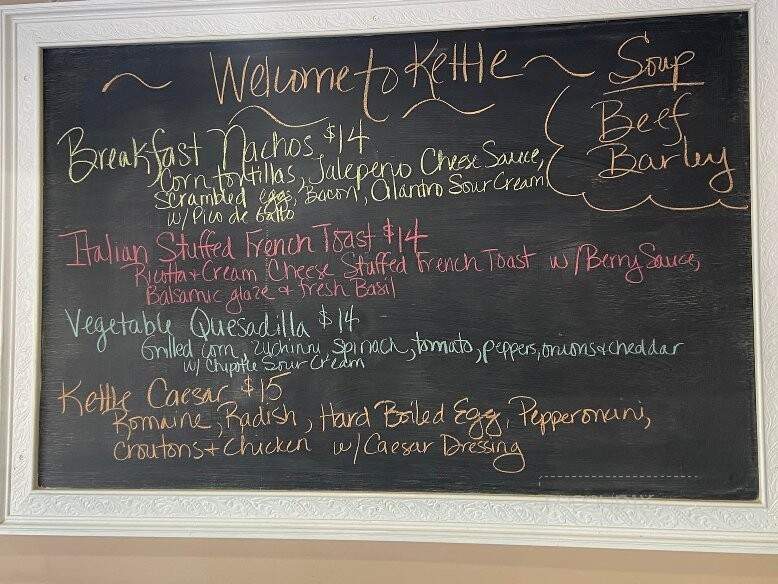 ~ Welcome to Kettle ~
Soup
Beef
Barley
Breakfast Nachos $14
Corn tortillas, Jalepeno Cheese Sauce,
Scrambled eggs, Bacon, Cilantro Sour Cream
w/ Pico de Gallo
Italian Stuffed French Toast $14
Ricotta + Cream Cheese Stuffed French Toast w/ Berry Sauce,
Balsamic glaze + fresh Basil
Vegetable Quesadilla $14
Grilled corn, zuchinni, spinach, tomato, peppers, onions + cheddar
w/ Chipotle Sour Cream
Kettle Caesar $15
Romaine, Radish, Hard Boiled Egg, Pepperoncini,
Croutons + Chicken w/ Caesar Dressing